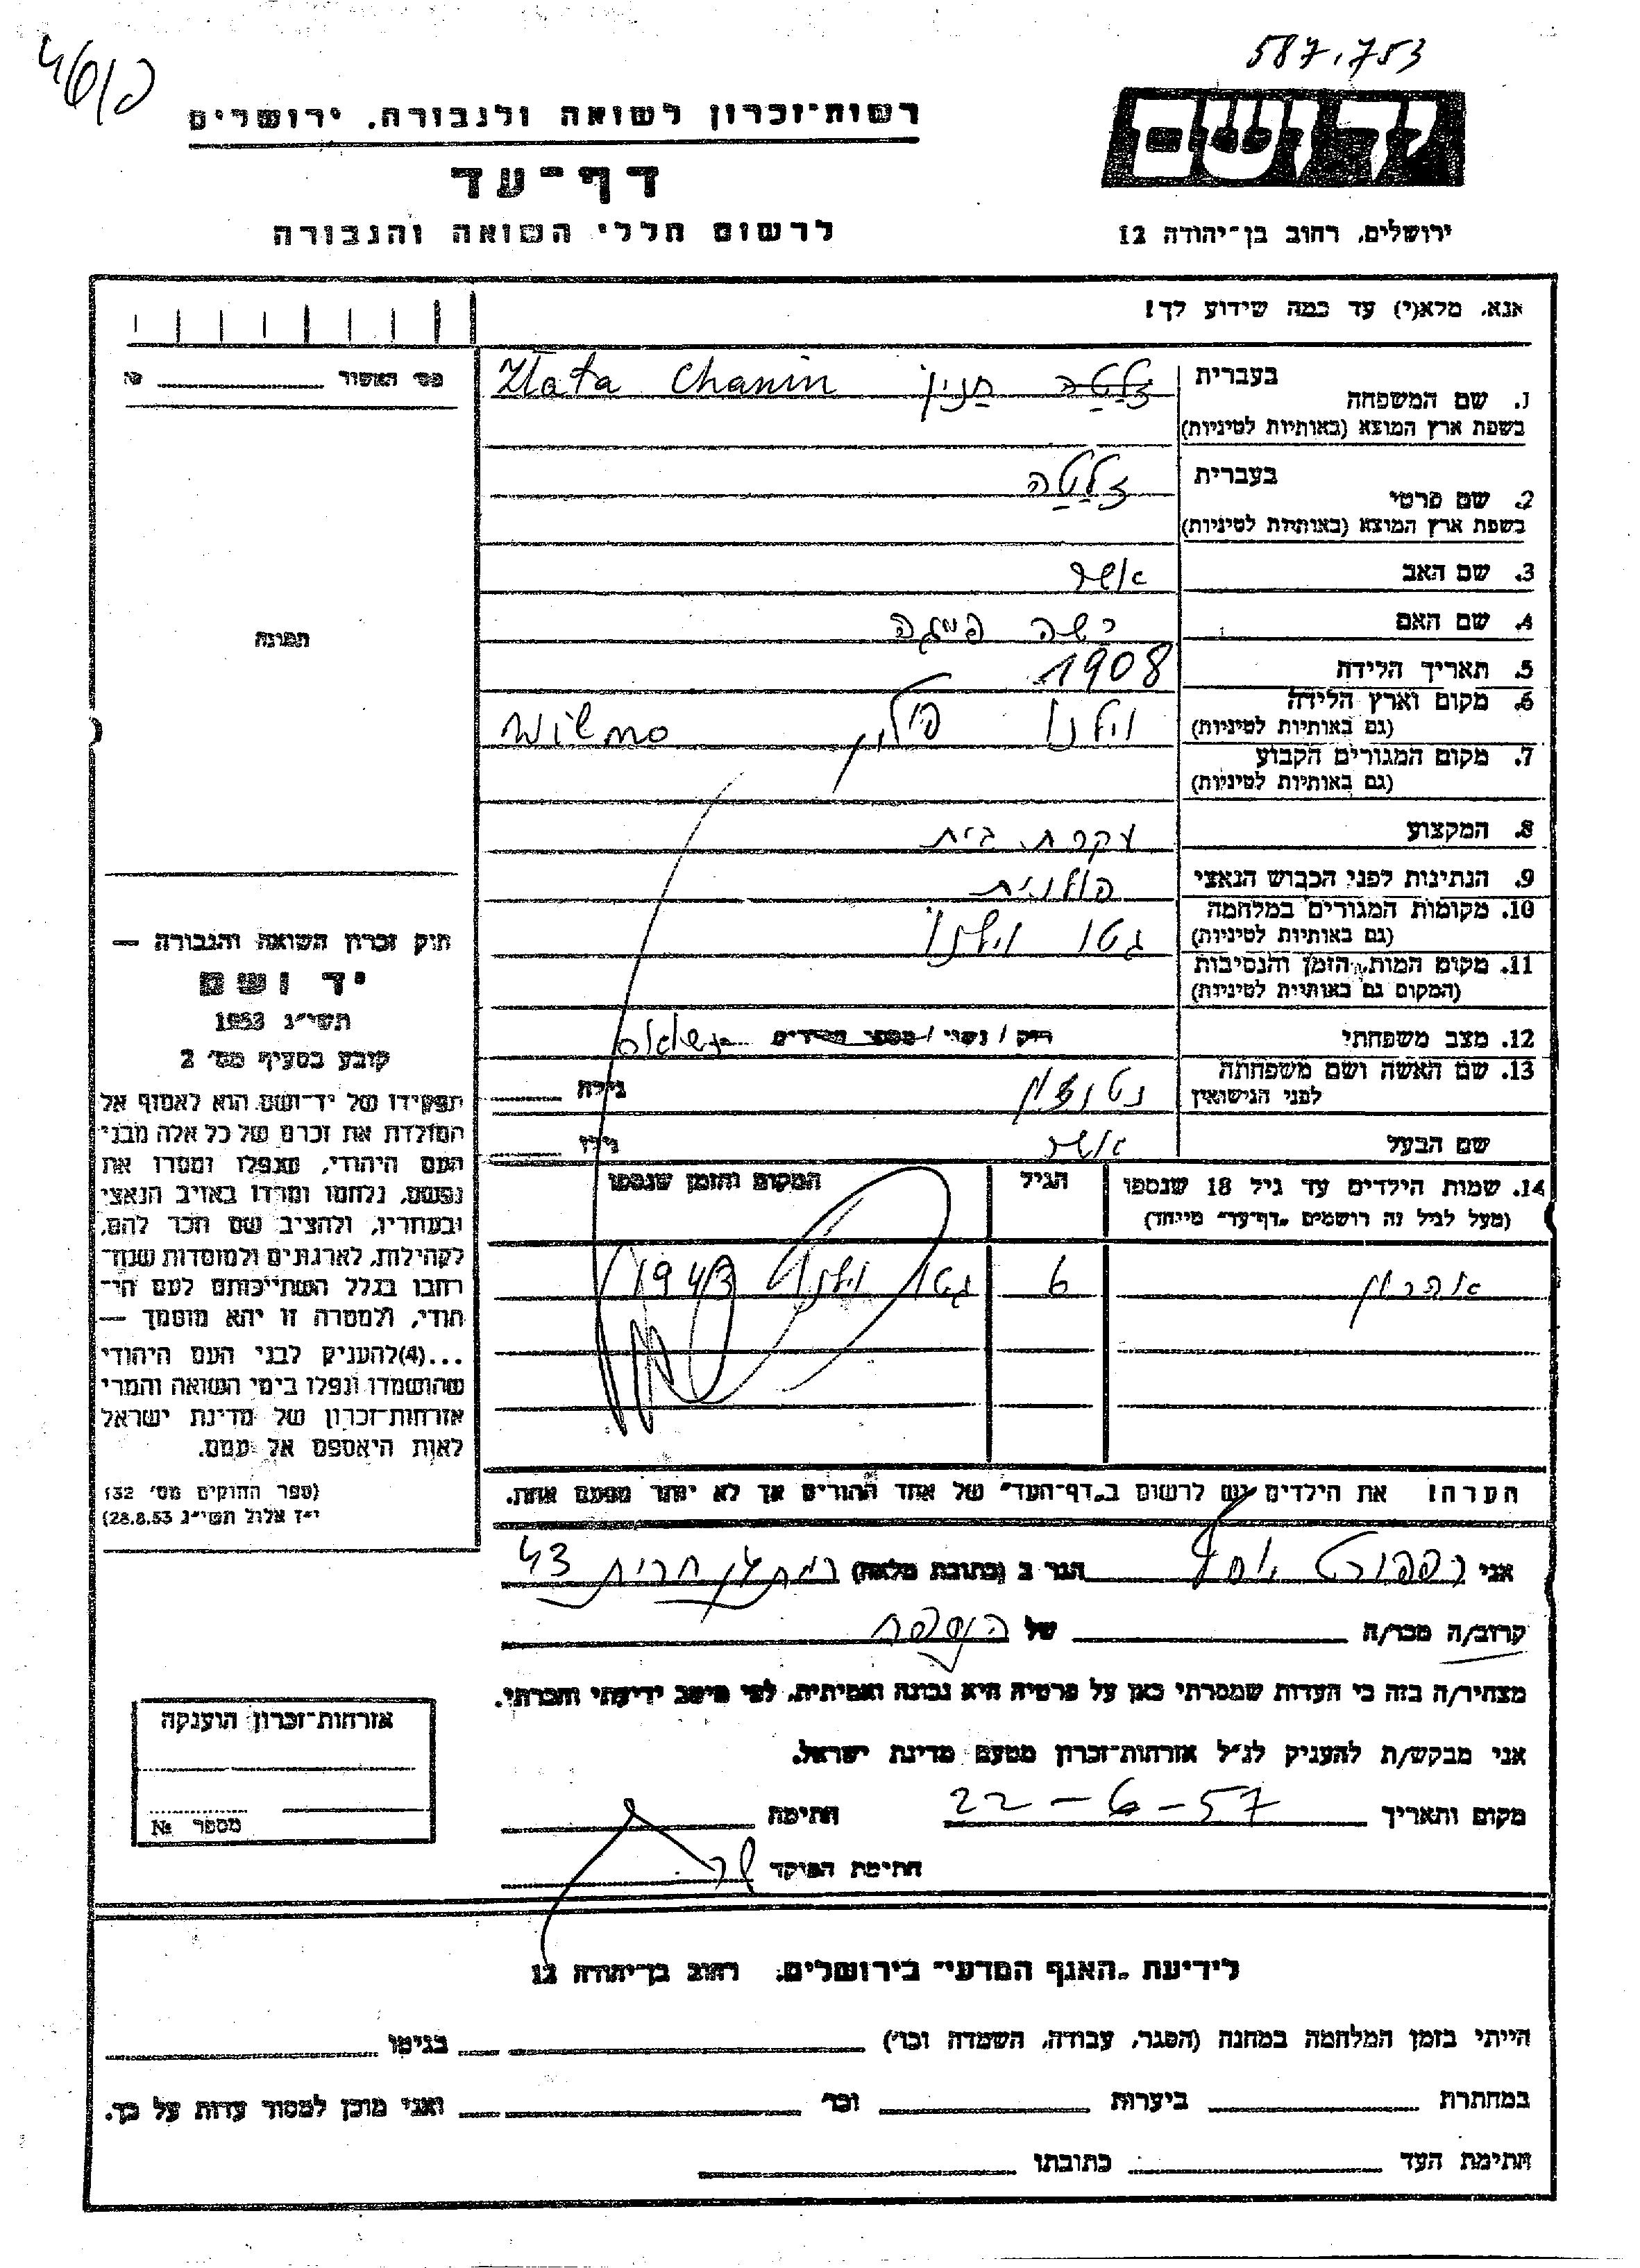 587.753
רשות-זכרון לשואה ולגבורה, ירושלים
דף-עד
לרשום חללי השואה והגבורה
ירושלים, רחוב בן-יהודה 12
אנא, מלא(י) עד כמה שידוע לך!
מס' האשור №
תמונה
חוק זכרון השואה והגבורה —
יד ושם
תשי"ג 1953
קובע בסעיף מס' 2
תפקידו של יד-ושם הוא לאסוף אל
המולדת את זכרם של כל אלה מבני
העם היהודי, שנפלו ומסרו את
נפשם, נלחמו ומרדו באויב הנאצי
ובעוזריו, ולהציב שם וזכר להם,
לקהילות, לארגונים ולמוסדות שנח-
רבו בגלל השתייכותם לעם הי-
הודי, ולמטרה זו יהא מוסמך —
...(4) להעניק לבני העם היהודי
שהושמדו ונפלו בימי השואה והמרי
אזרחות-זכרון של מדינת ישראל
לאות היאספם אל עמם.
(ספר החוקים מס' 132
י"ז אלול תשי"ג 28.8.53)
1. שם המשפחה בעברית זלטה חנין Zlata Chanin
בשפת ארץ המוצא (באותיות לטיניות)
2. שם פרטי בעברית זלטה
בשפת ארץ המוצא (באותיות לטיניות)
3. שם האב אשר
4. שם האם
5. תאריך הלידה 1908
6. מקום וארץ הלידה וילנו פולין Wilno
(גם באותיות לטיניות)
7. מקום המגורים הקבוע
(גם באותיות לטיניות)
8. המקצוע עקרת בית
9. הנתינות לפני הכבוש הנאצי פולנית
10. מקומות המגורים במלחמה גטו וילנו
(גם באותיות לטיניות)
11. מקום המות, הזמן והנסיבות
(המקום גם באותיות לטיניות)
12. מצב משפחתי רוק / נשוי / מספר הילדים
13. שם האשה ושם משפחתה
לפני הנישואין נטנזון גילה
שם הבעל אשר גילו
14. שמות הילדים עד גיל 18 שנספו הגיל המקום והזמן שנספו
(מעל לגיל זה רושמים "דף-עד" מיוחד)
אהרון 6 גטו וילנו 1943
הערה! את הילדים יש לרשום ב"דף-העד" של אחד ההורים אך לא יותר מפעם אחת.
אני רפפורט הגר ב (כתובת מלאה) רמת גן חרות 43
קרוב/ה מכר/ה של הנספה
מצהיר/ה בזה כי העדות שמסרתי כאן על פרטיה היא נכונה ואמיתית, לפי מיטב ידיעתי והכרתי.
אני מבקש/ת להעניק לנ"ל אזרחות-זכרון מטעם מדינת ישראל.
מקום ותאריך 22-6-57 חתימה
חתימת הפוקד
אזרחות-זכרון הוענקה
מספר №
לידיעת "האגף המדעי" בירושלים, רחוב בן-יהודה 12
הייתי בזמן המלחמה במחנה (הסגר, עבודה, השמדה וכו') בגיטו
במחתרת ביערות וכו' ואני מוכן למסור עדות על כך.
חתימת העד כתובתו